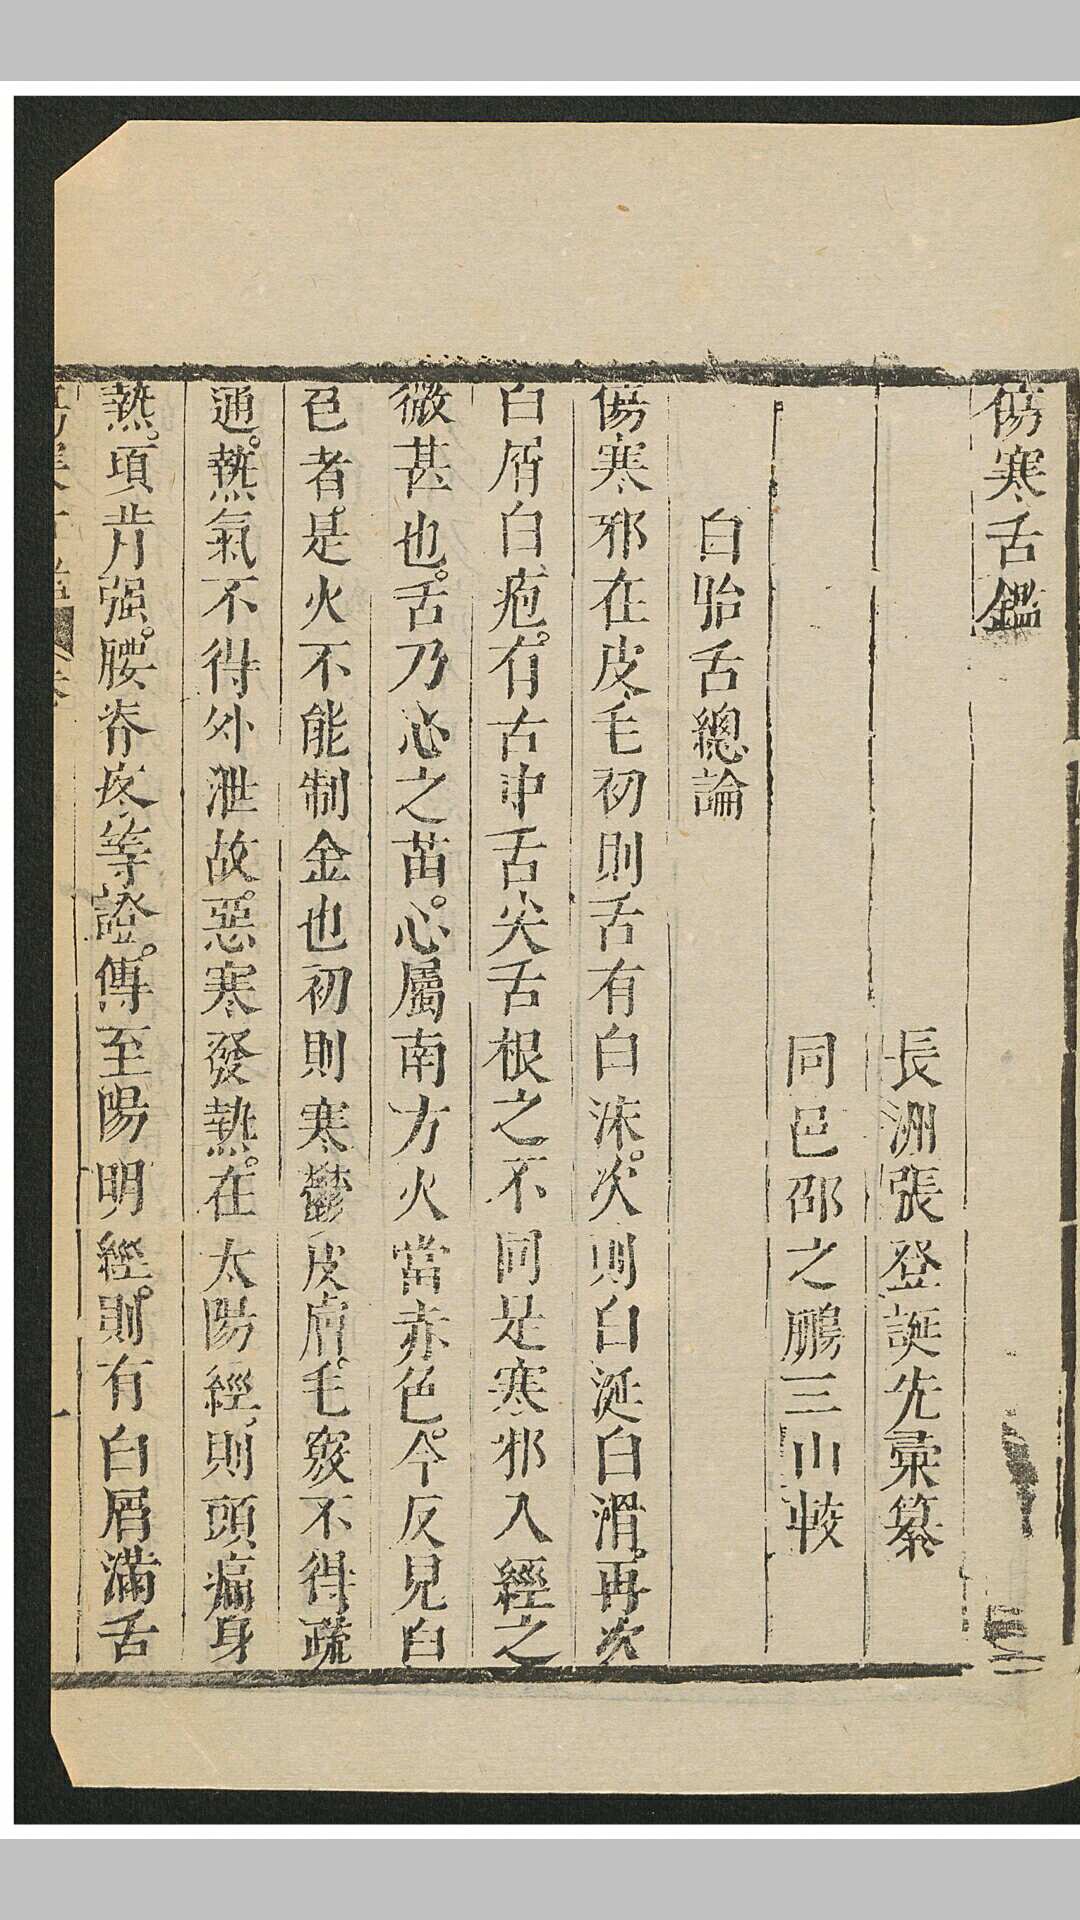 傷寒舌鑑
長洲張登誕先彚纂
同邑邵之鵬三山較
白胎舌總論
傷寒邪在皮毛初則舌有白沫。次則白涎白滑。再次
白屑白疱。有舌中舌尖舌根之不同是寒邪入經之
微甚也。舌乃心之苗。心屬南方火當赤色。今反見白
色者。是火不能制金也初則寒鬱皮膚。毛竅不得疏
通。熱氣不得外泄故。惡寒發熱。在太陽經則頭痛身
熱。項背强。腰脊疼等證。傳至陽明經。則有白屑滿舌